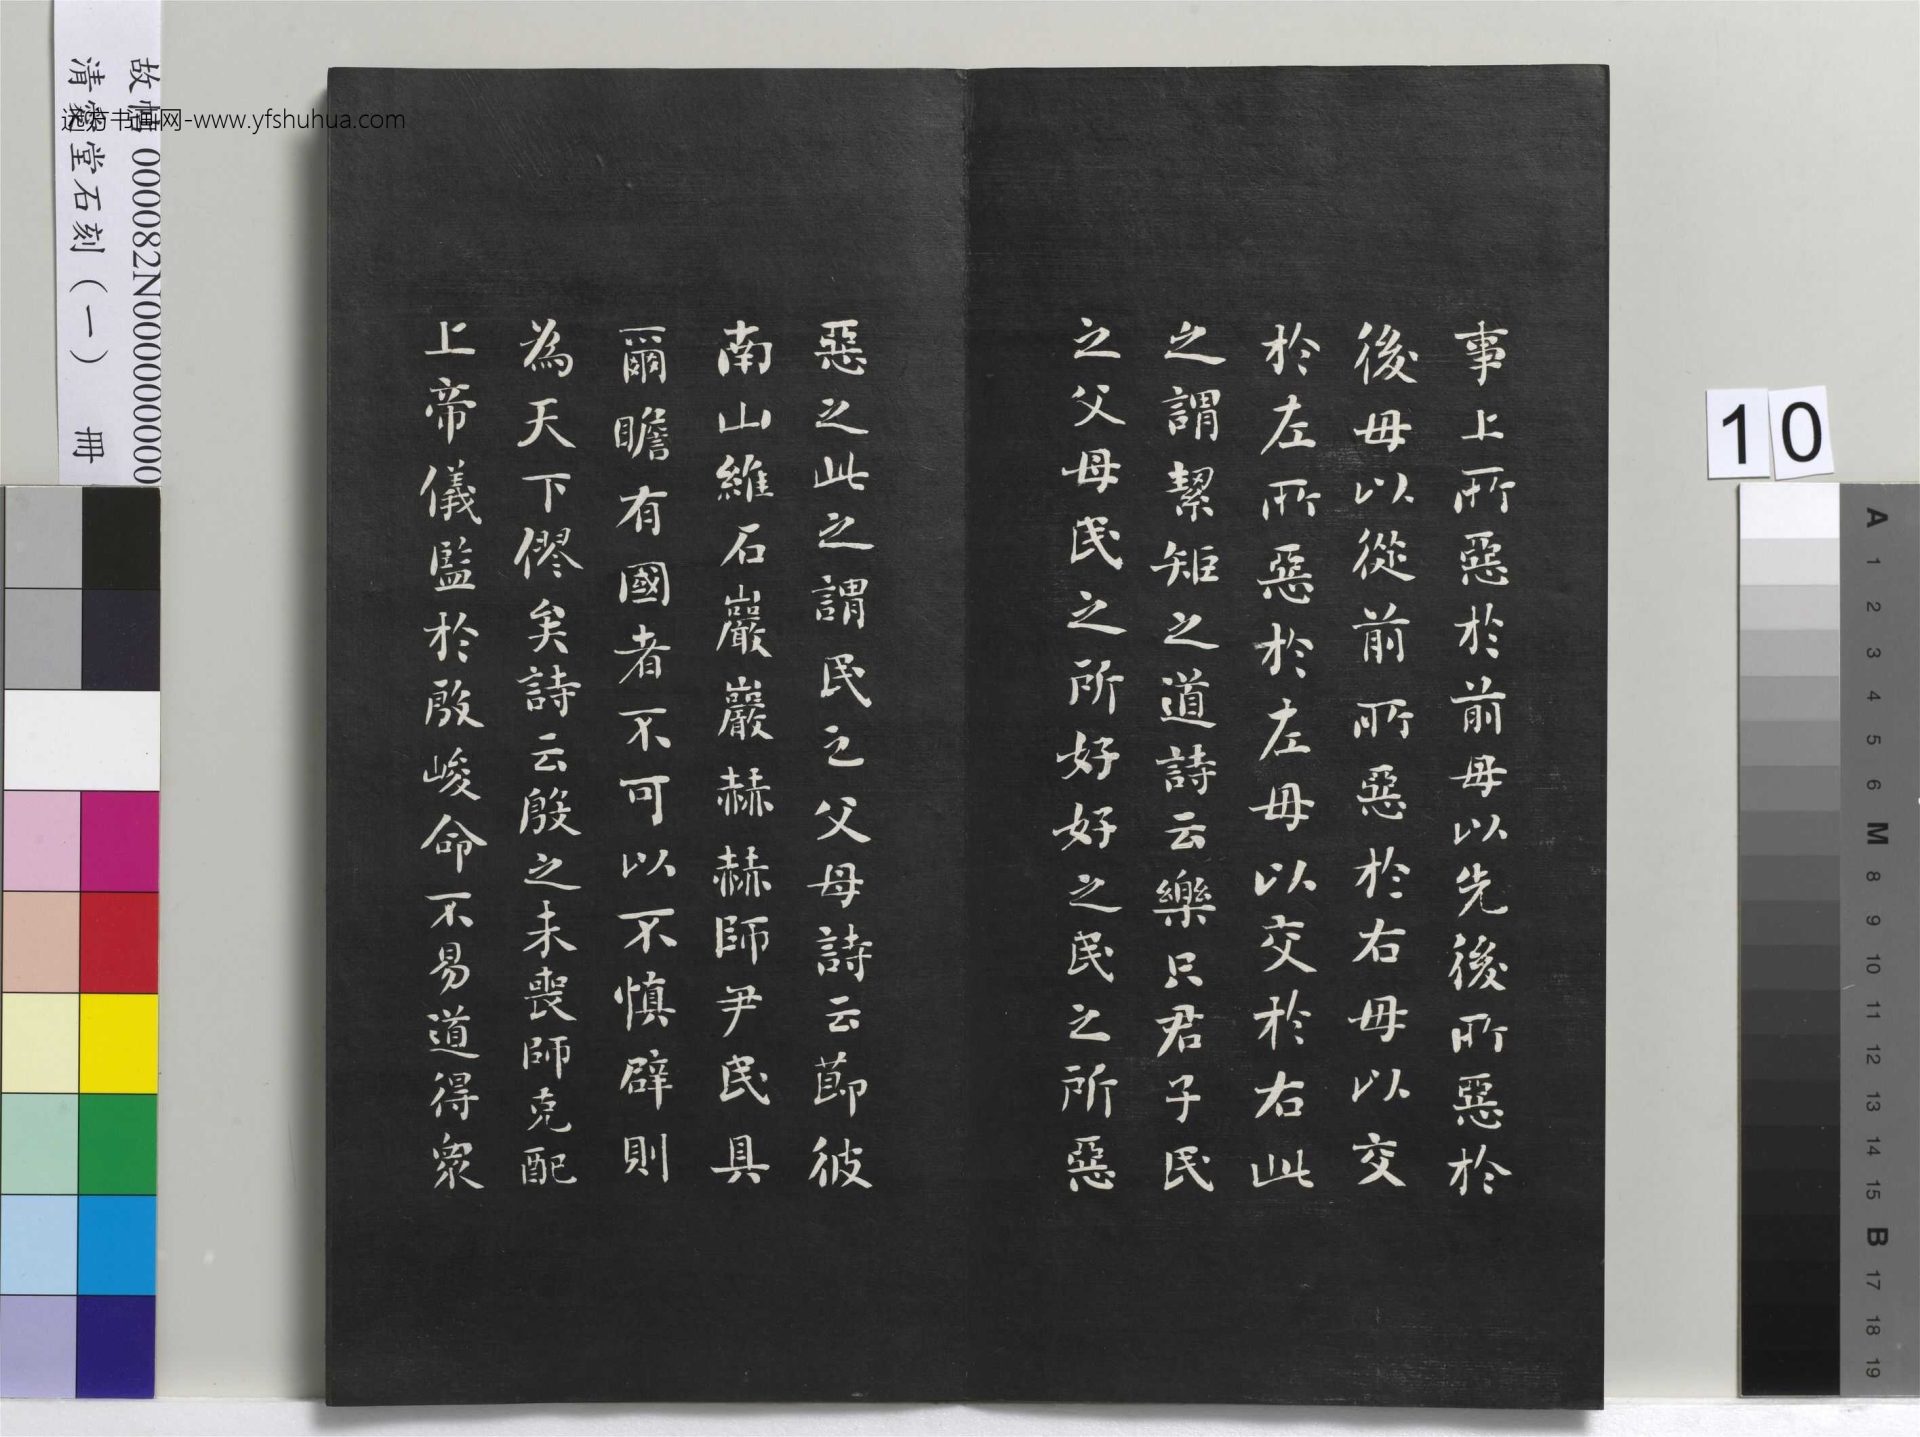 事上所惡於前毋以先後所惡於
後毋以從前所惡於右毋以交
於左所惡於左毋以交於右此
之謂絜矩之道詩云樂只君子民
之父母民之所好好之民之所惡
惡之此之謂民之父母詩云節彼
南山維石巖巖赫赫師尹民具
爾瞻有國者不可以不慎辟則
為天下僇矣詩云殷之未喪師克配
上帝儀監於殷峻命不易道得衆
故帖 000082N000000000
清 堂石刻（一） 冊
书画网-www.yfshuhua.com
10
A 1 2 3 4 5 6 M 8 9 10 11 12 13 14 15 B 17 18 19